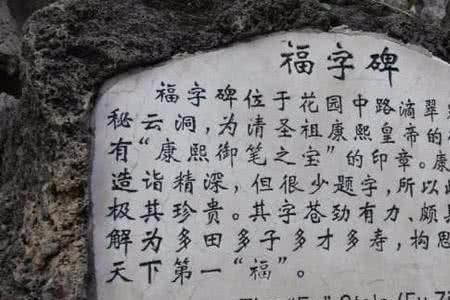 福字碑
福字碑位于花园中路滴翠
秘云洞，为清圣祖康熙皇帝的
有“康熙御笔之宝”的印章。康
造诣精深，但很少题字，所以
极其珍贵。其字苍劲有力、颇
解为多田多子多才多寿，构思
天下第一“福”。